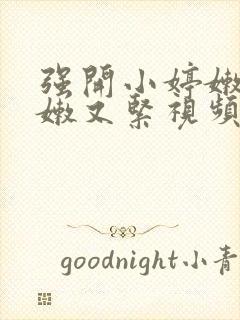 强開小婷嫩
嫩又緊視頻
goodnight小青